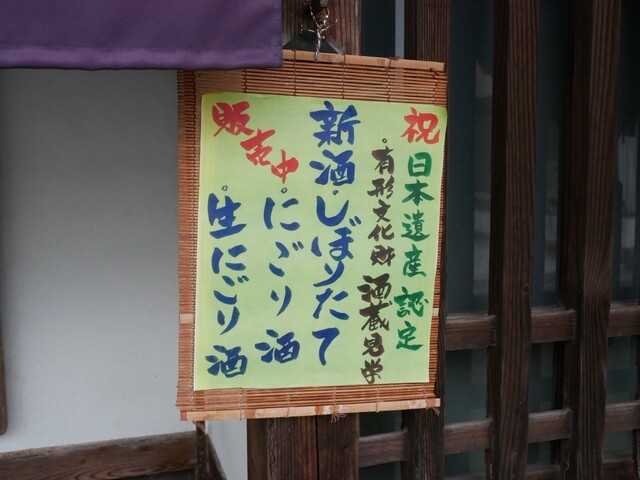 祝 日本遺産認定
。有形文化財 酒蔵見学
新酒しぼりたて
。にごり酒
。生にごり酒
販売中